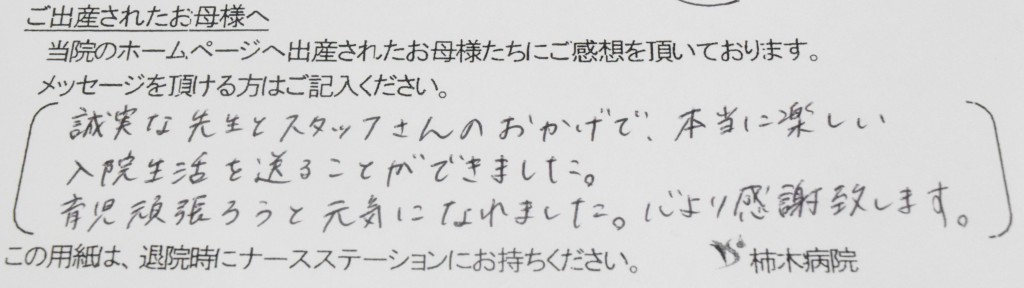 ご出産されたお母様へ
当院のホームページへ出産されたお母様たちにご感想を頂いております。
メッセージを頂ける方はご記入ください。
誠実な先生とスタッフさんのおかげで、本当に楽しい
入院生活を送ることができました。
育児頑張ろうと元気になれました。心より感謝致します。
この用紙は、退院時にナースステーションにお持ちください。 柿木病院